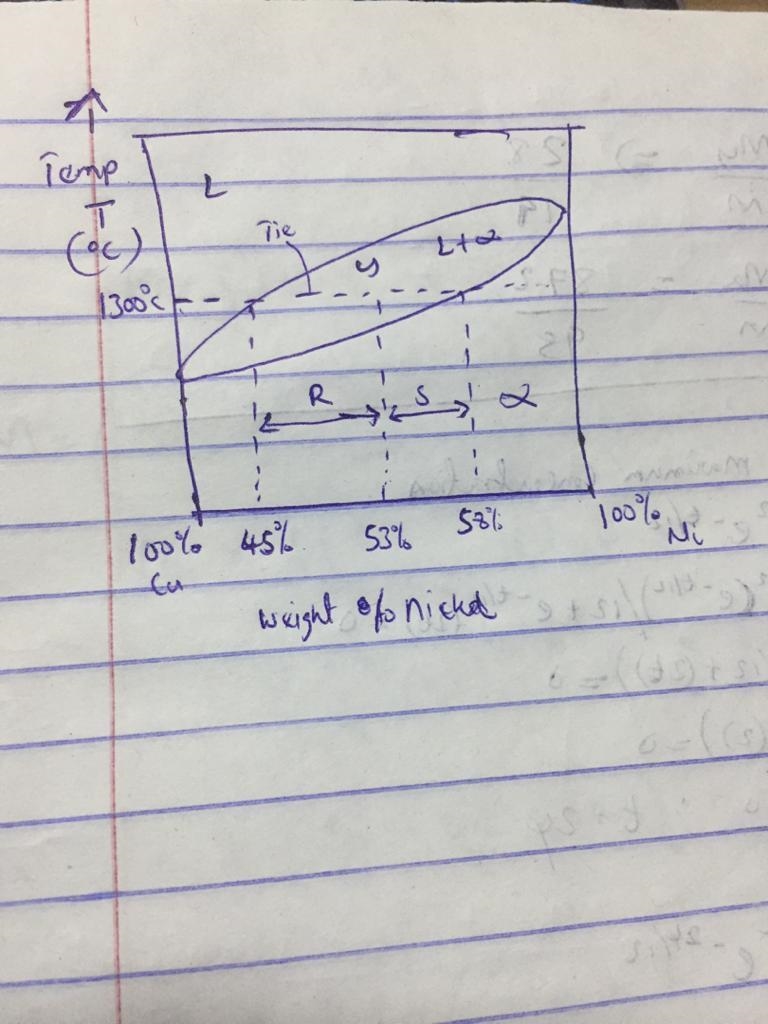 Temp
T
(°C)
L
Tie
y
L+α
1300°C
R
S
α
100% 45% 53% 58% 100%
Cu
Ni
weight % nickel